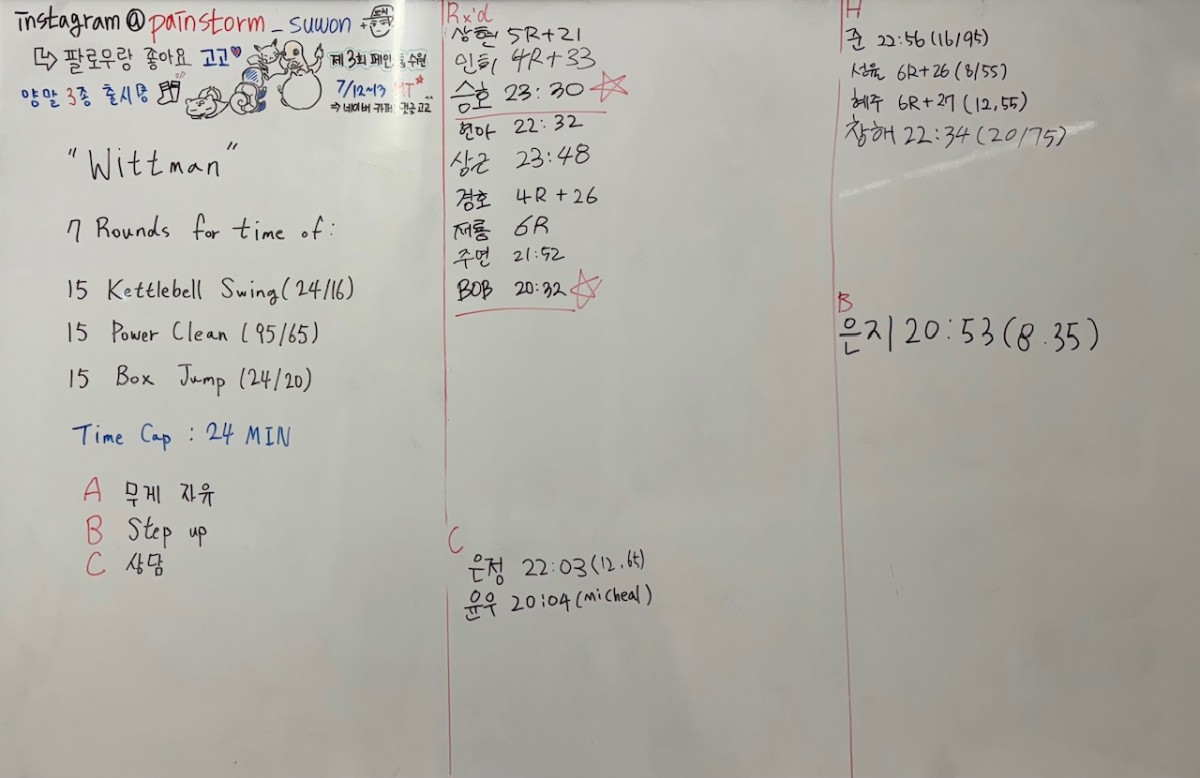 instagram@painstorm_suwon +
↳ 팔로우랑 좋아요 고고♥
양말 3종 출시중
제 3회 페인스톰 수원
7/12~13 MT☆
⇒ 네이버 카페 댓글 고고
"Wittman"
7 Rounds for time of:
15 Kettlebell Swing (24/16)
15 Power Clean (95/65)
15 Box Jump (24/20)
Time Cap : 24 MIN
A 무게 자유
B Step up
C 상담
Rx'd
상현 5R+21
인희 4R+33
승호 23:30 ☆
현아 22:32
상근 23:48
경호 4R+26
재룡 6R
주연 21:52
BOB 20:32 ☆
C
은정 22:03 (12.65)
윤우 20:04 (micheal)
준 22:56 (16/95)
성율 6R+26 (8/55)
혜주 6R+27 (12,55)
창해 22:34 (20/75)
B
은지 20:53 (8.35)